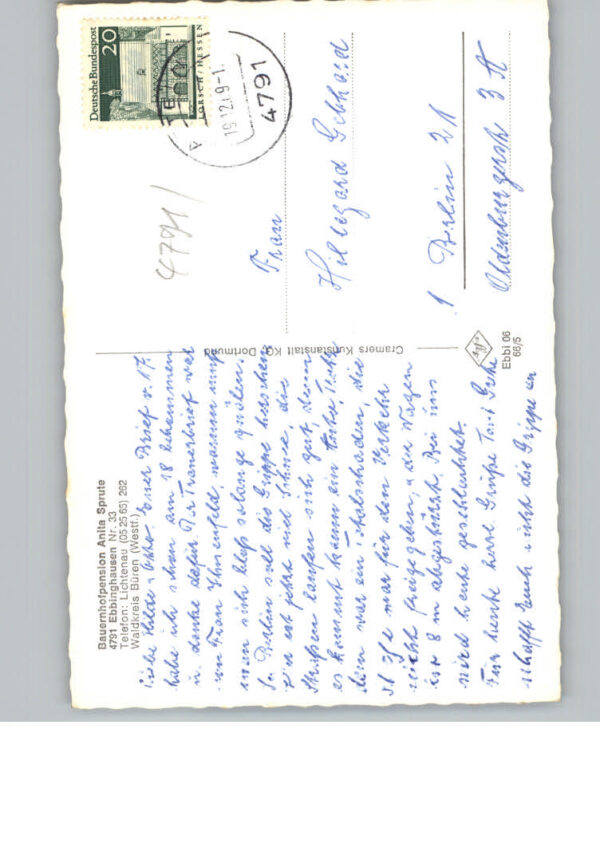 Bauernhofpension Anita Sprute
4791 Ebbinghausen Nr. 33
Telefon: Lichtenau (0 52 65) 262
Waldkreis Büren (Westf.)
Liebe Hilde u. Euer Brief v. 17.
habe ich schon am 18 bekommen
u. danke dafür. Der Trauerbrief war
von Frau Ihnenfeld, warum muß
man sich bloß solange quälen.
In Berlin soll die Grippe herrschen
jetzt viel Schnee, die
Straßen laufen sich gut, denn
es kommt kaum ein
denn war ein die
war für den Verkehr
nicht freigegeben, u. der Wagen
ist 8 m abgestürzt. Bei uns
wird heute geschlachtet.
Für heute herzl. Grüße Tante
schafft Euch nicht die Grippe an
Cramers Kunstanstalt KG, Dortmund
Ebbi 06
66/5
Deutsche Bundespost
20
LORSCH/HESSEN
19.12.
4791
4791/
Frau
Hildegard Gebhard
1 Berlin 21
Oldenburgerstr 3